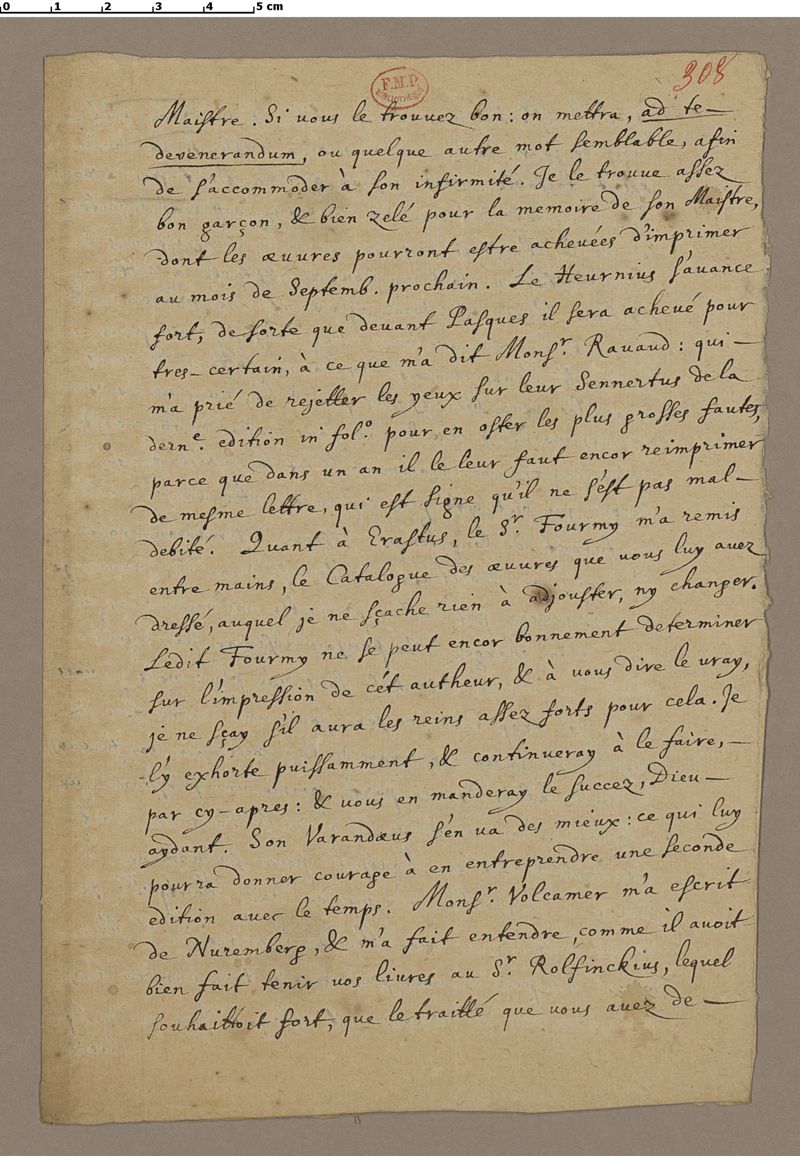 0 1 2 3 4 5 cm
308
F.M.P.
Maistre. Si vous le trouvez bon: on mettra, ad te-
devenerandum, ou quelque autre mot semblable, afin
de s'accommoder à son infirmité. Je le trouve assez
bon garçon, & bien zelé pour la memoire de son Maistre,
dont les œuvres pourront estre acheuées d'imprimer
au mois de Septemb. prochain. Le Heurnius s'auance
fort, de sorte que deuant Pasques il sera acheué pour
tres-certain, à ce que m'a dit Monsr. Rauaud: qui-
m'a prié de rejetter les yeux sur leur Sennertus de la
derne. edition in folo. pour en oster les plus grosses fautes,
parce que dans un an il le leur faut encor reimprimer
de mesme lettre, qui est signe qu'il ne s'est pas mal-
debité. Quant à Erastus, le Sr. Fourmy m'a remis
entre mains, le Catalogue des œuures que vous luy auez
dressé, auquel je ne sçache rien à adjouster, ny changer.
Ledit Fourmy ne se peut encor bonnement determiner
sur l'impression de cét autheur, & à vous dire le vray,
je ne sçay s'il aura les reins assez forts pour cela. Je
l'y exhorte puissamment, & continueray à le faire,-
par cy-apres: & vous en manderay le succez, Dieu-
aydant. Son Varandæus s'en va des mieux: ce qui luy
pourra donner courage à en entreprendre une seconde
edition avec le temps. Monsr. Volcamer m'a escrit
de Nuremberg, & m'a fait entendre, comme il auoit
bien fait tenir vos liures au Sr. Rolfinckius, lequel
souhaittoit fort, que le traitté que vous auez de-